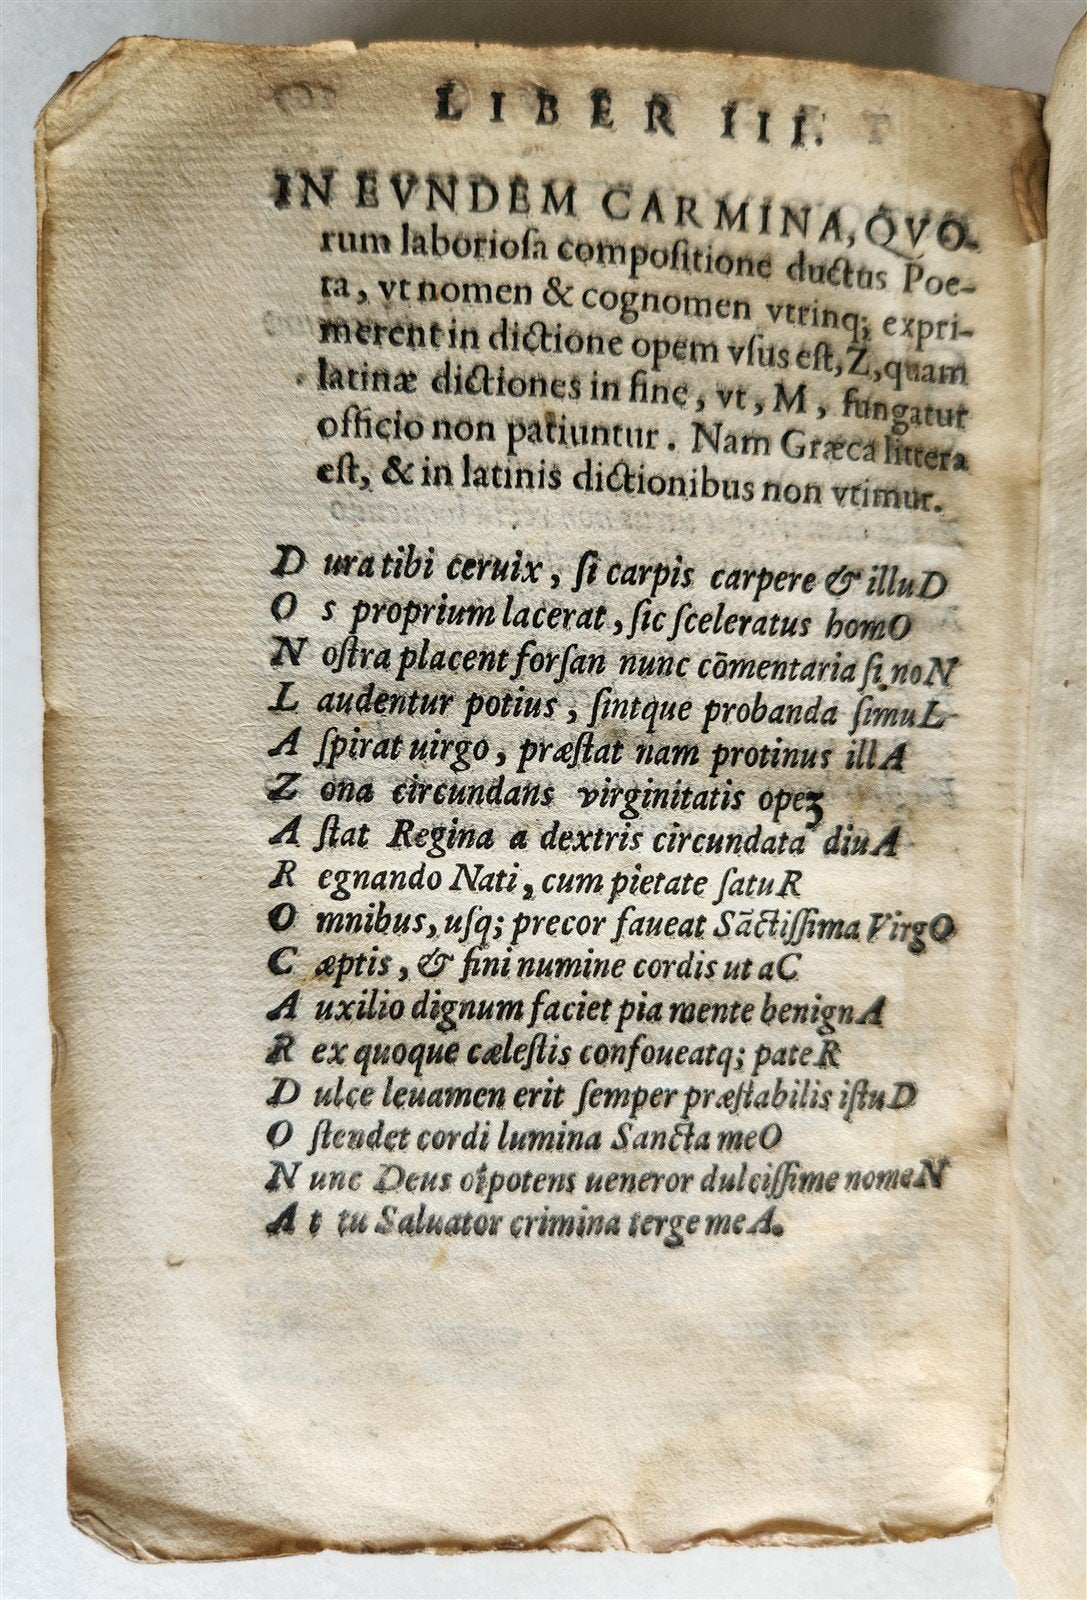 LIBER III.
IN EVNDEM CARMINA, QVO-
rum laborioſa compoſitione ductus Poe-
ta, vt nomen & cognomen vtrinq; expri-
merent in dictione opem vſus eſt, Z, quam
latinæ dictiones in fine, vt, M, fungatur
officio non patiuntur. Nam Græca littera
eſt, & in latinis dictionibus non vtimur.
D ura tibi ceruix, ſi carpis carpere & illuD
O s proprium lacerat, ſic ſceleratus homO
N oſtra placent forſan nunc cōmentaria ſi noN
L audentur potius, ſintque probanda ſimuL
A ſpirat uirgo, præſtat nam protinus illA
Z ona circundans virginitatis opeꝫ
A ſtat Regina a dextris circundata diuA
R egnando Nati, cum pietate ſatuR
O mnibus, uſq; precor faueat Sāctiſſima VirgO
C æptis, & fini numine cordis ut aC
A uxilio dignum faciet pia mente benignA
R ex quoque cæleſtis confoueatq; pateR
D ulce leuamen erit ſemper præſtabilis iſtuD
O ſtendet cordi lumina Sancta meO
N unc Deus oīpotens ueneror dulciſſime nomeN
A t tu Saluator crimina terge meA.